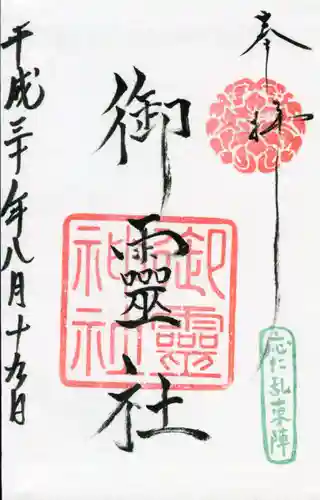 奉拝
応仁乱東陣
御靈社
御靈神社
平成三十年八月十九日